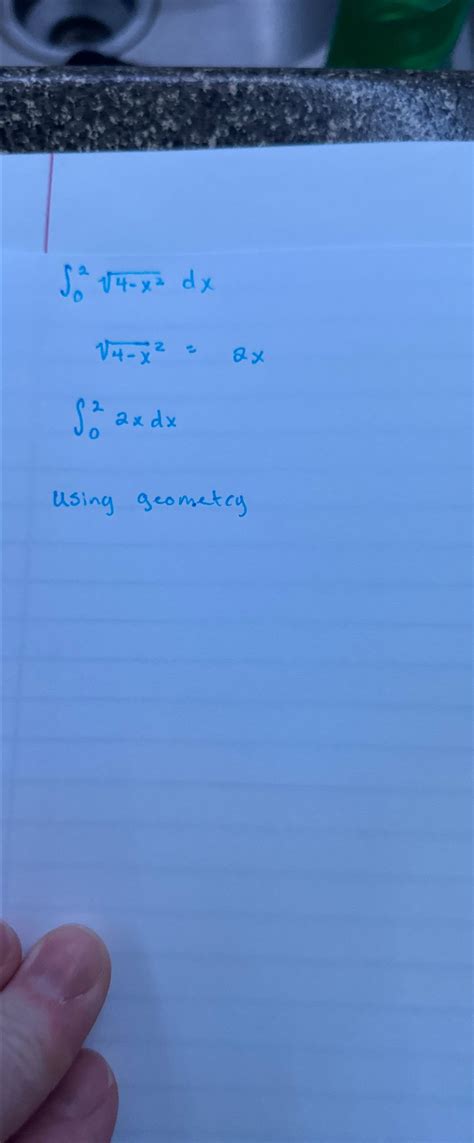 ∫₀² √4-x² dx
√4-x² = 2x
∫₀² 2x dx
Using geometry